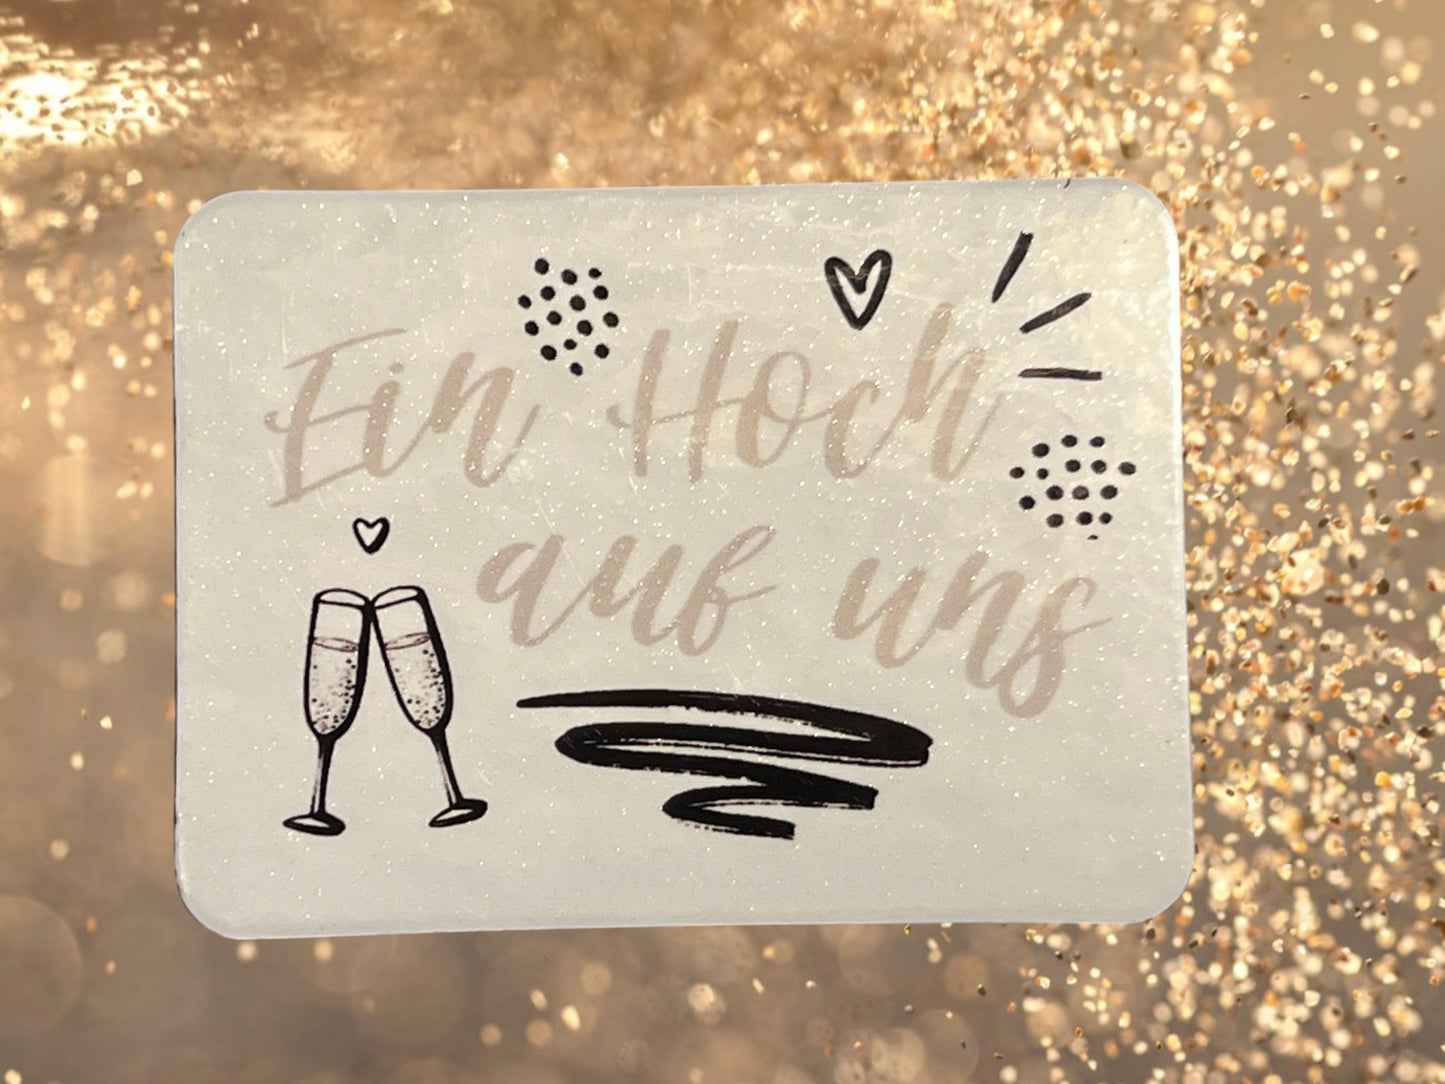 Ein Hoch
auf uns